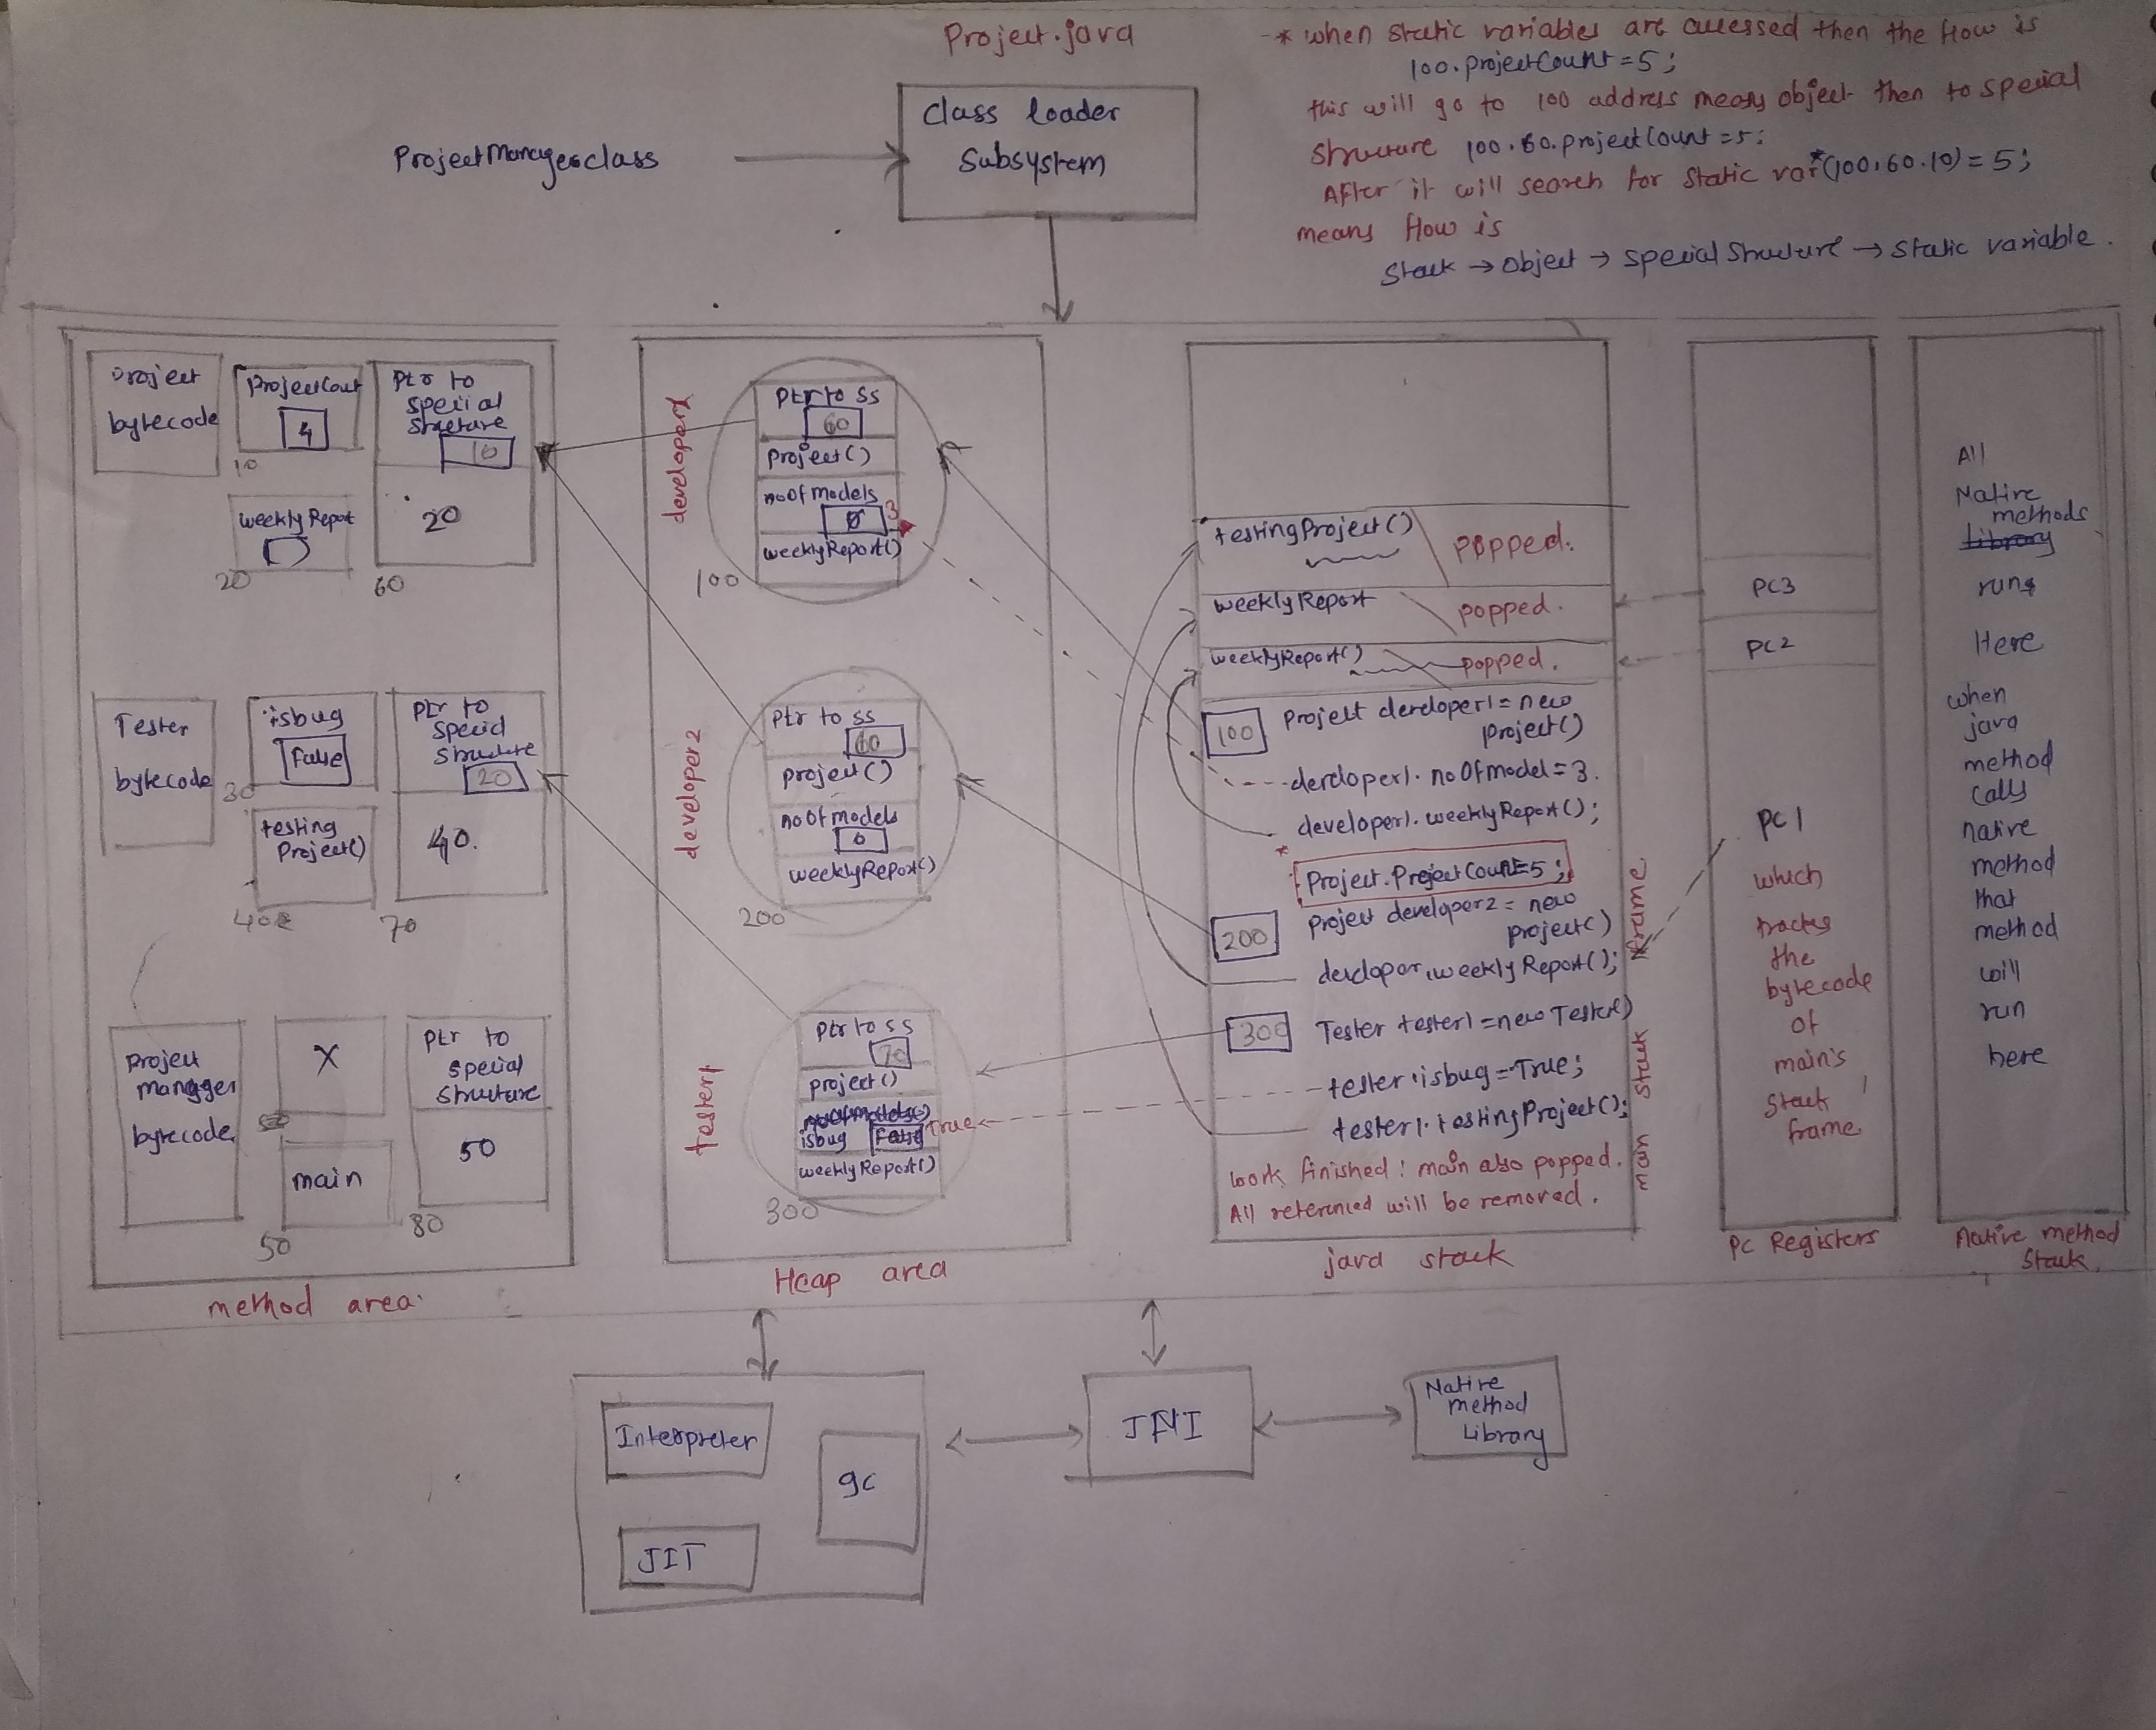 Project.java
* when static variables are accessed then the flow is
100.projectCount=5;
this will go to 100 address means object then to special
structure 100.60.projectCount=5;
After it will search for static var *(100.60.10)=5;
means flow is
Stack → Object → special structure → static variable.
Class loader
Subsystem
Project
bytecode
ProjectCout
4
10
Ptr to
special
structure
10
weeklyReport
20
20
60
Tester
bytecode
isbug
False
30
testing
Project()
40
Ptr to
special
structure
20
40.
70
Project
manager
bytecode
X
main
50
Ptr to
special
structure
50
80
method area
developer1
Ptr to ss
60
project()
noOfmodels
0 3
weeklyReport()
100
developer2
Ptr to ss
60
project()
noOfmodels
0
weeklyReport()
200
tester1
Ptr to ss
70
project()
isbug False True
weeklyReport()
300
Heap area
testingProject() popped.
weeklyReport popped.
weeklyReport() popped.
100 Project developer1 = new
project()
developer1.noOfmodel=3.
developer1.weeklyReport();
* Project.ProjectCount=5;
200 Project developer2 = new
project()
developer.weeklyReport();
300 Tester tester1 = new Tester()
tester.isbug=True;
tester1.testingProject();
work finished! main also popped.
All referenced will be removed.
main stack frame
java stack
PC3
PC2
PC1
which
tracks
the
bytecode
of
main's
stack
frame
PC Registers
All
Native
methods
Library
runs
Here
when
java
method
calls
native
method
that
method
will
run
here
Native method
Stack
Interpreter
JIT
gc
JNI
Native
method
Library